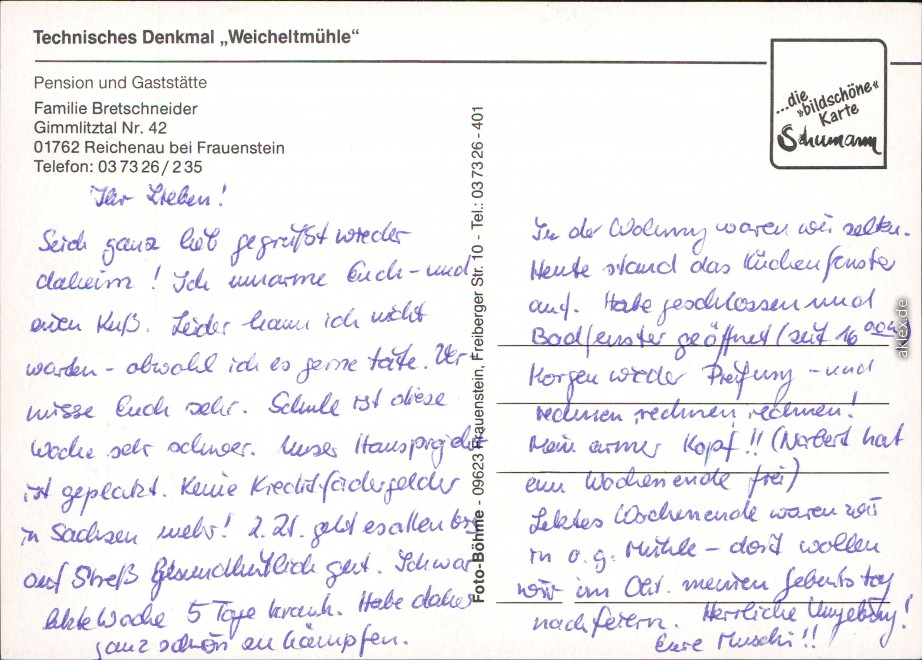 Technisches Denkmal „Weicheltmühle“
Pension und Gaststätte
Familie Bretschneider
Gimmlitztal Nr. 42
01762 Reichenau bei Frauenstein
Telefon: 03 73 26 / 2 35
...die
»bildschöne«
Karte
Schumann
Foto-Böhme - 09623 Frauenstein, Freiberger Str. 10 - Tel.: 03 73 26 - 401
Ihr Lieben!
Seid ganz lieb gegrüßt wieder
daheim! Ich umarme Euch - und
einen Kuß. Leider kann ich nicht
warten - obwohl ich es gerne täte. Ver
misse Euch sehr. Schule ist diese
Woche sehr schwer. Unser Hausprojekt
ist geplatzt. Keine Kreditfördergelder
in Sachsen mehr! Z. Zt. geht es allen bis
auf Streß gesundheitlich gut. Ich war
letzte Woche 5 Tage krank. Habe daher
ganz schön zu kämpfen.
In der Wohnung waren wir selten.
Heute stand das Küchenfenster
auf. Habe geschlossen und
Badfenster geöffnet (seit 16 00
Morgen wieder Prüfung - und
rechnen, rechnen, rechnen!
Mein armer Kopf!! (Norbert hat
ein Wochenende frei)
Letztes Wochenende waren wir
in o. g. Mühle - dort wollen
wir im Okt. meinen Geburtstag
nachfeiern. Herrliche Umgebung!
Eure Muschi!!
aklex.de